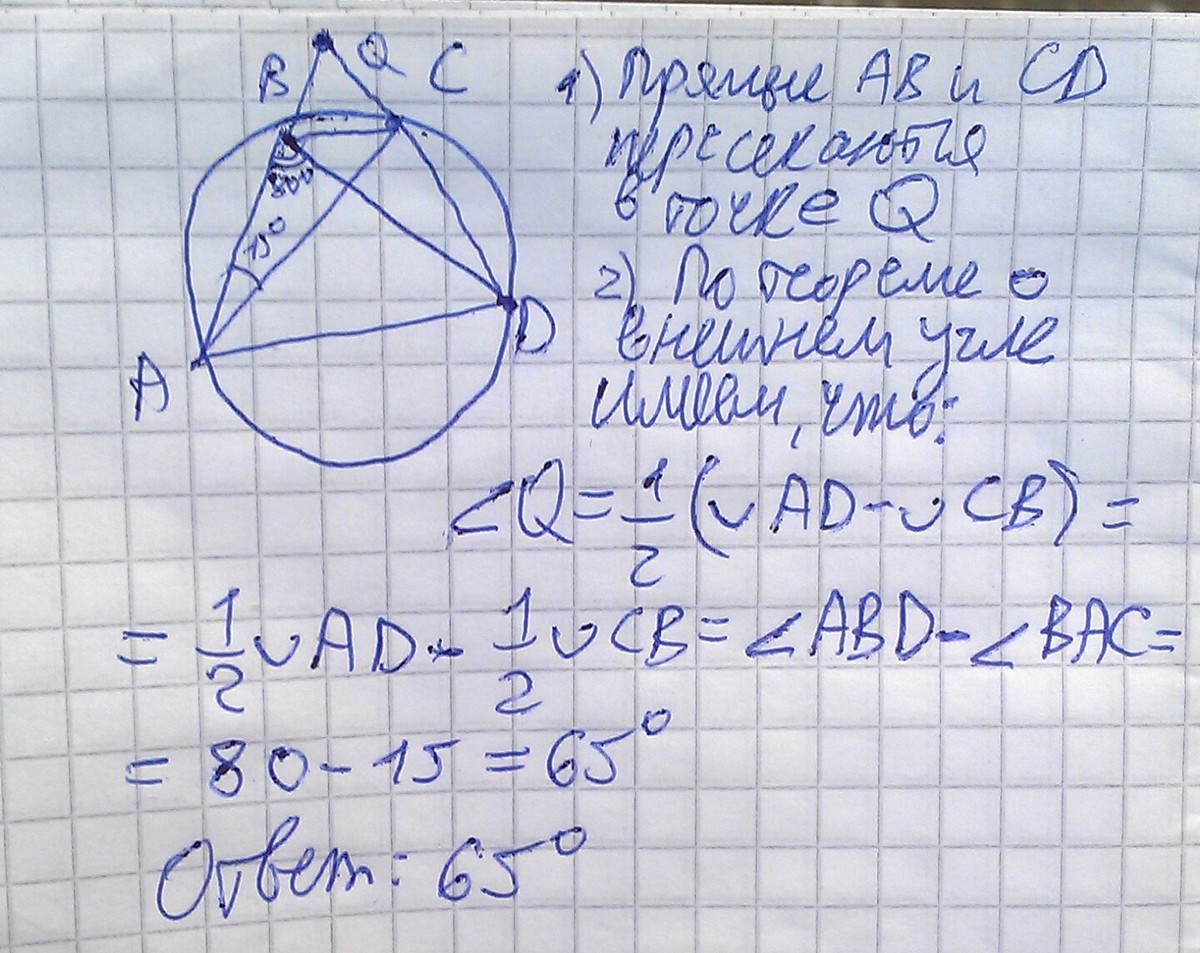 B Q C
80°
15°
A
D
1) Прямые AB и CD
пересекаются
в точке Q
2) По теореме о
внешнем угле
имеем, что:
∠Q = 1/2 (∪ AD - ∪ CB) =
= 1/2 ∪ AD - 1/2 ∪ CB = ∠ABD - ∠BAC =
= 80 - 15 = 65°
Ответ: 65°